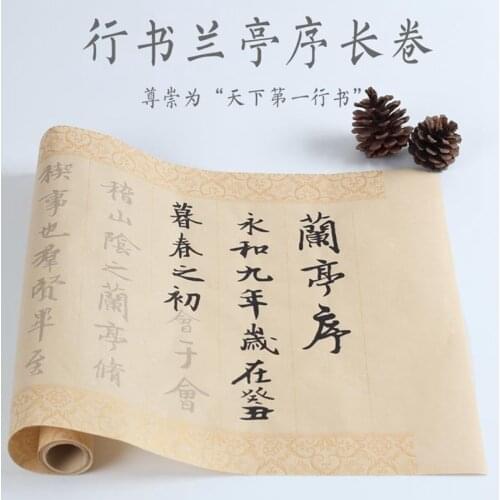 行书兰亭序长卷
尊崇为“天下第一行书”
蘭亭序
永和九年歲在癸丑
暮春之初會于會
稽山陰之蘭亭脩
禊事也羣賢畢至